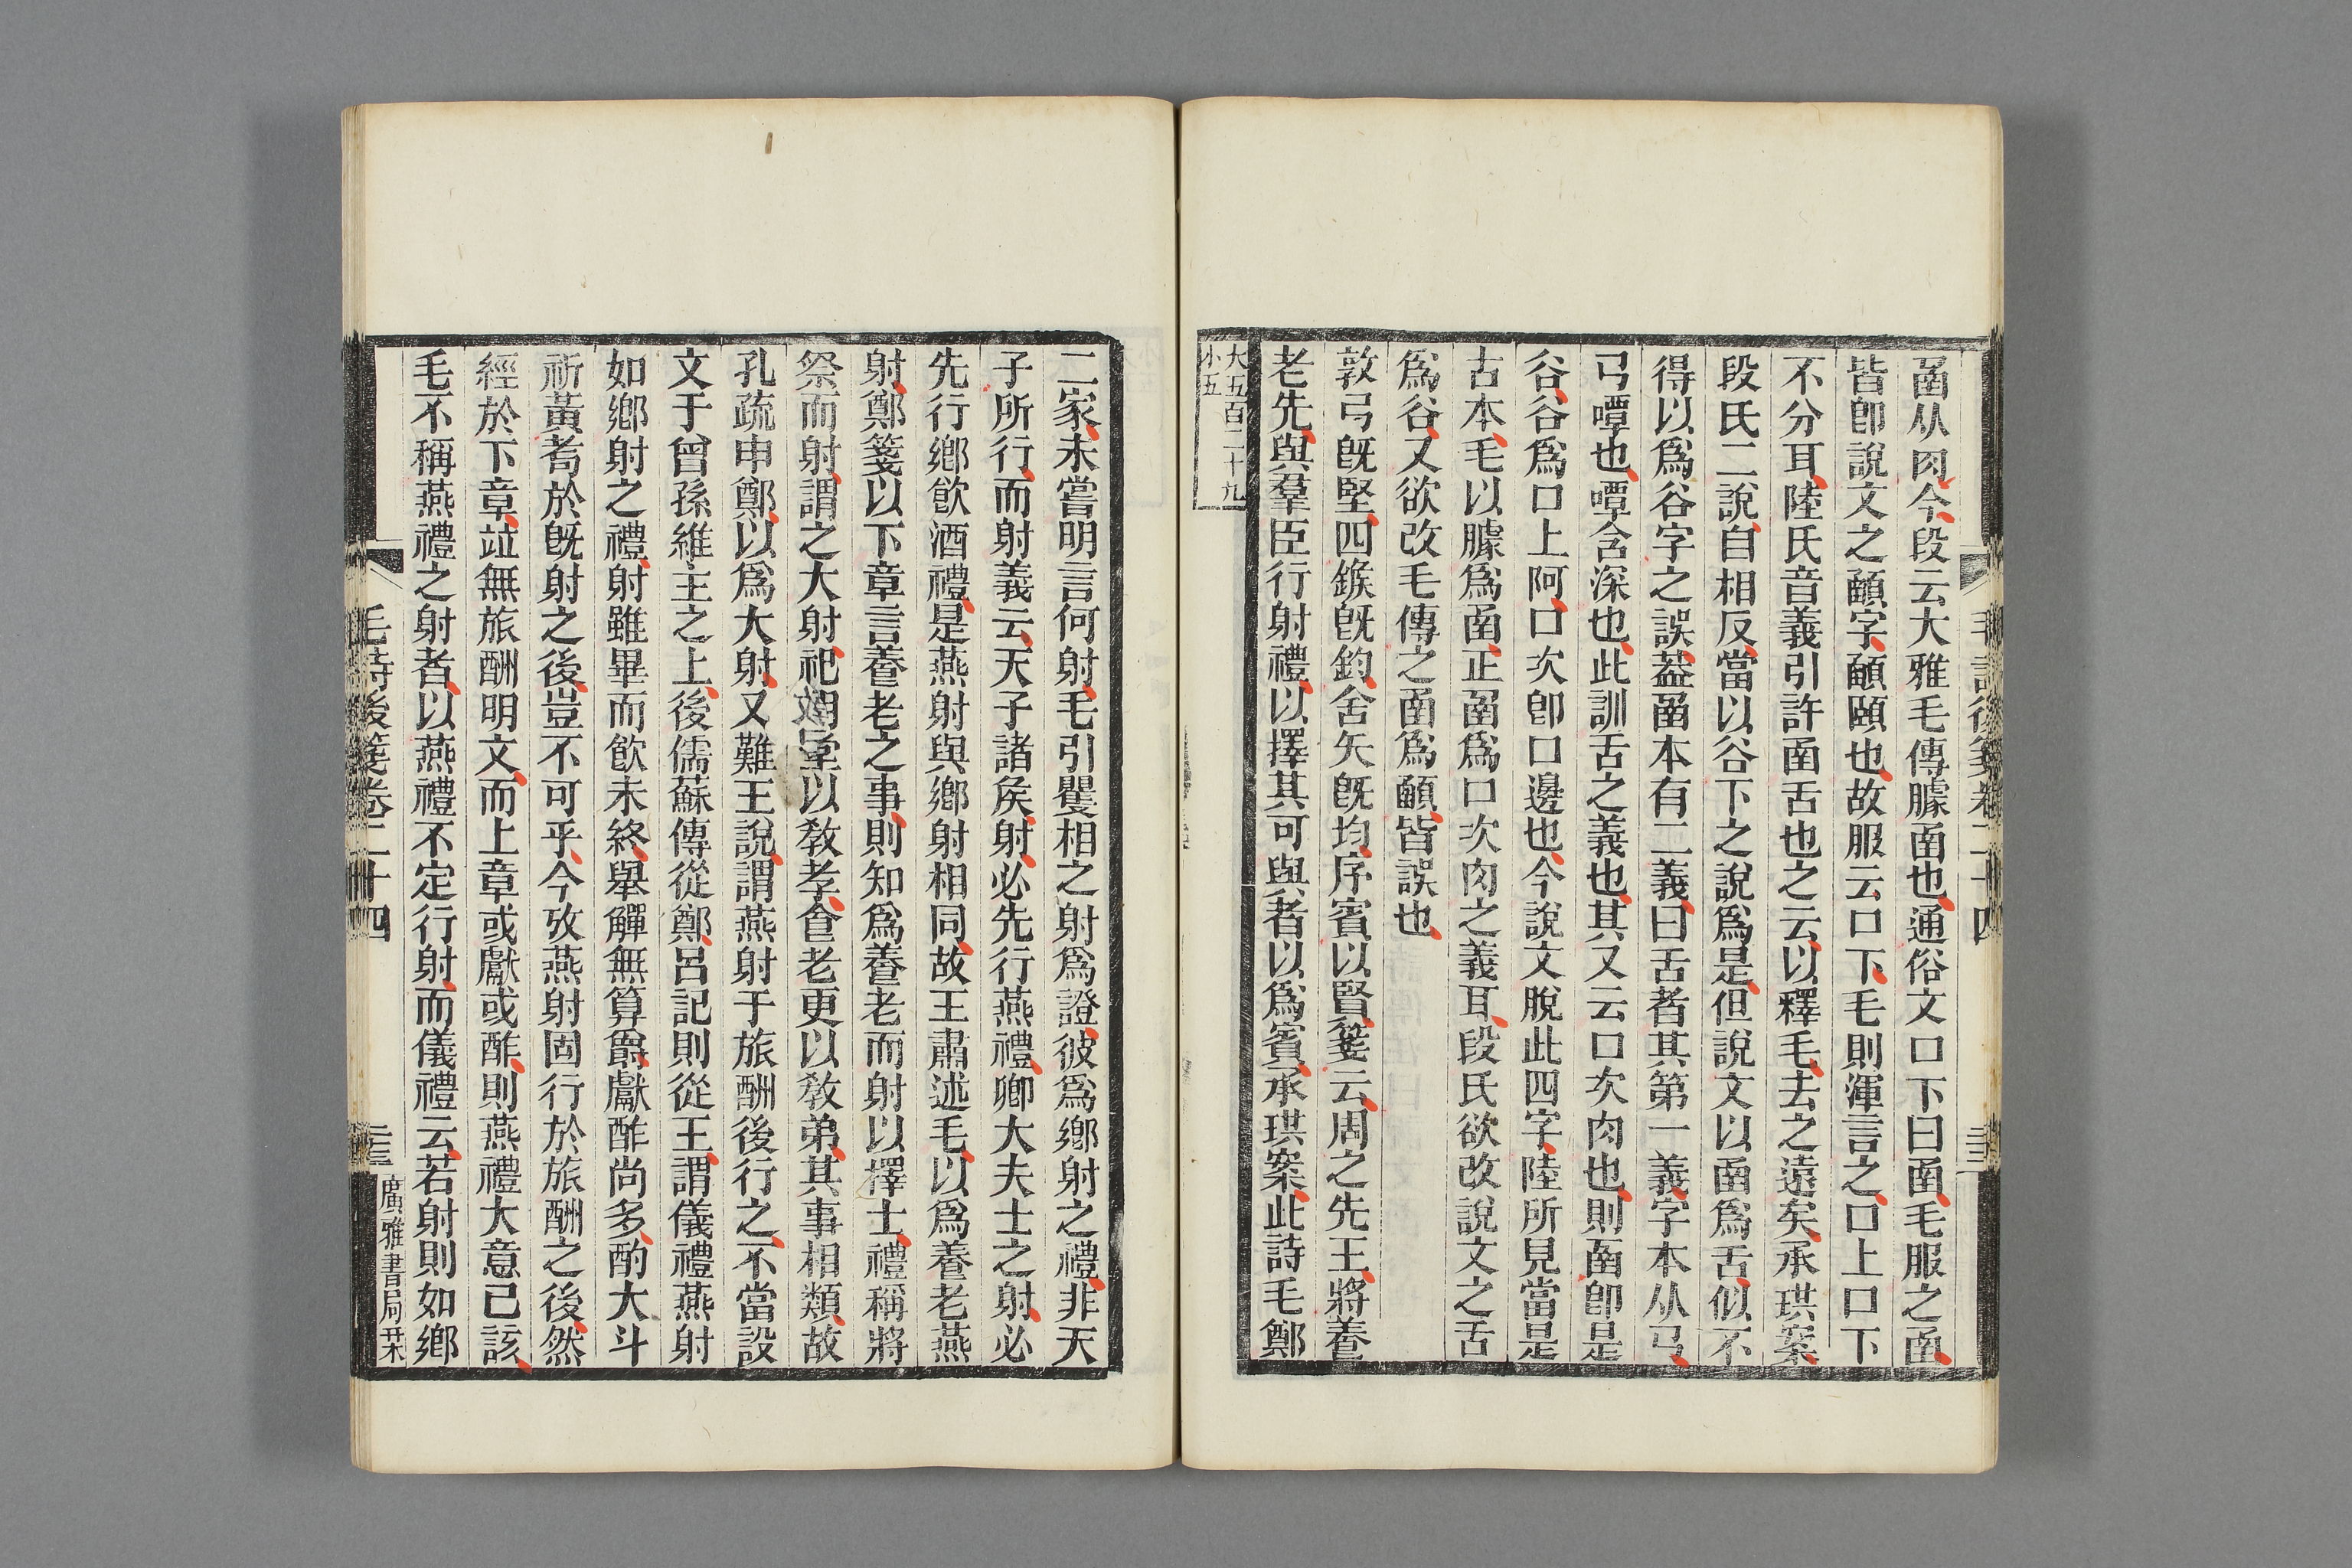 圅从肉今段云大雅毛傳臄圅也通俗文口下曰圅毛服之圅
皆卽說文之顄字顄頤也故服云口下毛則渾言之口上口下
不分耳陸氏音義引許圅舌也之云以釋毛去之遠矣承珙案
段氏二說自相反當以谷下之說爲是但說文以圅爲舌似不
得以爲谷字之誤葢圅本有二義曰舌者其第一義字本从𢎘
𢎘嘾也嘾含深也此訓舌之義也其又云口次肉也則圅卽是
谷谷爲口上阿口次卽口邊也今說文脫此四字陸所見當是
古本毛以臄爲圅正圅爲口次肉之義耳段氏欲改說文之舌
爲谷又欲改毛傳之圅爲顄皆誤也
敦弓旣堅四鍭旣鈞舍矢旣均序賓以賢箋云周之先王將養
老先與羣臣行射禮以擇其可與者以爲賓承珙案此詩毛鄭
大五百二十九
小五
毛詩後箋卷二十四
二家未嘗明言何射毛引矍相之射爲證彼爲鄕射之禮非天
子所行而射義云天子諸矦射必先行燕禮卿大夫士之射必
先行鄕飮酒禮是燕射與鄕射相同故王肅述毛以爲養老燕
射鄭箋以下章言養老之事則知爲養老而射以擇士禮稱將
祭而射謂之大射祀明堂以敎孝食老更以敎弟其事相類故
孔疏申鄭以爲大射又難王說謂燕射于旅酬後行之不當設
文于曾孫維主之上後儒蘇傳從鄭呂記則從王謂儀禮燕射
如鄕射之禮射雖畢而飮未終舉觶無算爵獻酢尚多酌大斗
祈黃耇於旣射之後豈不可乎今攷燕射固行於旅酬之後然
經於下章竝無旅酬明文而上章或獻或酢則燕禮大意已該
毛不稱燕禮之射者以燕禮不定行射而儀禮云若射則如鄕
毛詩後箋卷二十四
廣雅書局栞